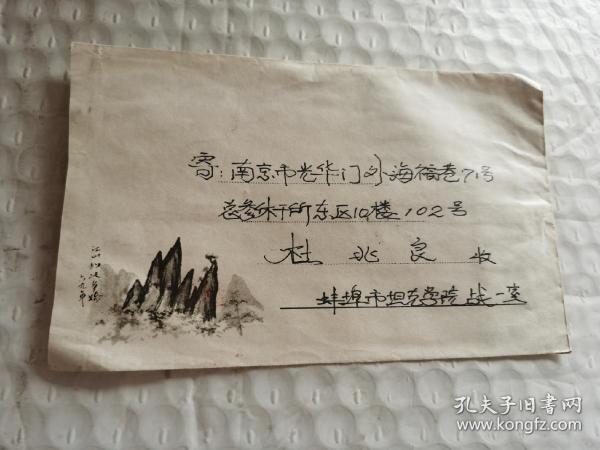 寄:南京市光华门外海福巷71号
总参休干所东区10楼102号
杜兆良 收
蚌埠市坦克学院战一室
江山如此多娇
六九年
孔夫子旧书网
www.kongfz.com